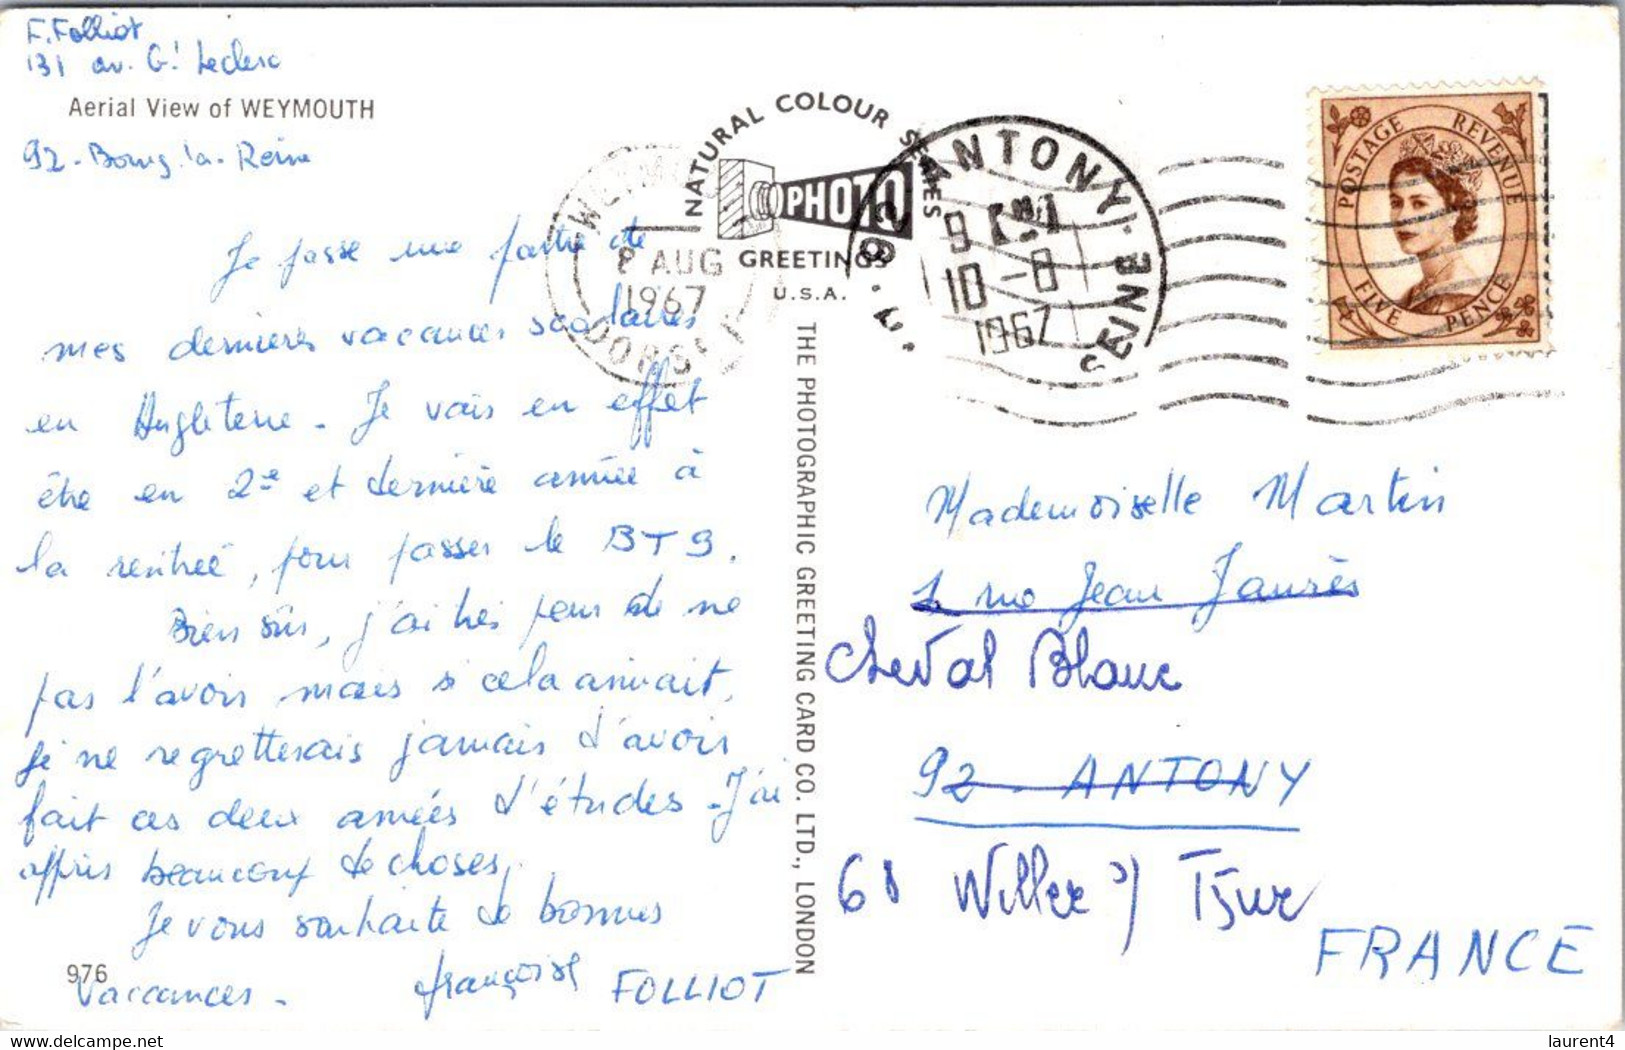 F. Folliot
131 av. Gl Leclerc
Aerial View of WEYMOUTH
92 - Bourg la Reine
Je passe une partie de
mes dernières vacances scolaires
en Angleterre - Je vais en effet
être en 2e et dernière année à
la rentrée, pour passer le BTS.
Bien sûr, j'ai très peur de ne
pas l'avoir mais si cela arrivait,
je ne regretterais jamais d'avoir
fait ces deux années d'études - J'ai
appris beaucoup de choses,
Je vous souhaite de bonnes
vaccances -
976
françoise FOLLIOT
NATURAL COLOUR SERIES
PHOTO
GREETINGS
U.S.A.
THE PHOTOGRAPHIC GREETING CARD CO. LTD., LONDON
WEYMOUTH
8 AUG
1967
DORSET
ANTONY
9
10-8
1967
SEINE
POSTAGE REVENUE
FIVE PENCE
Mademoiselle Martin
1 rue Jean Jaurès
Cheval Blanc
92 - ANTONY
68 Willer s/ Thur
FRANCE
delcampe.net
laurent4